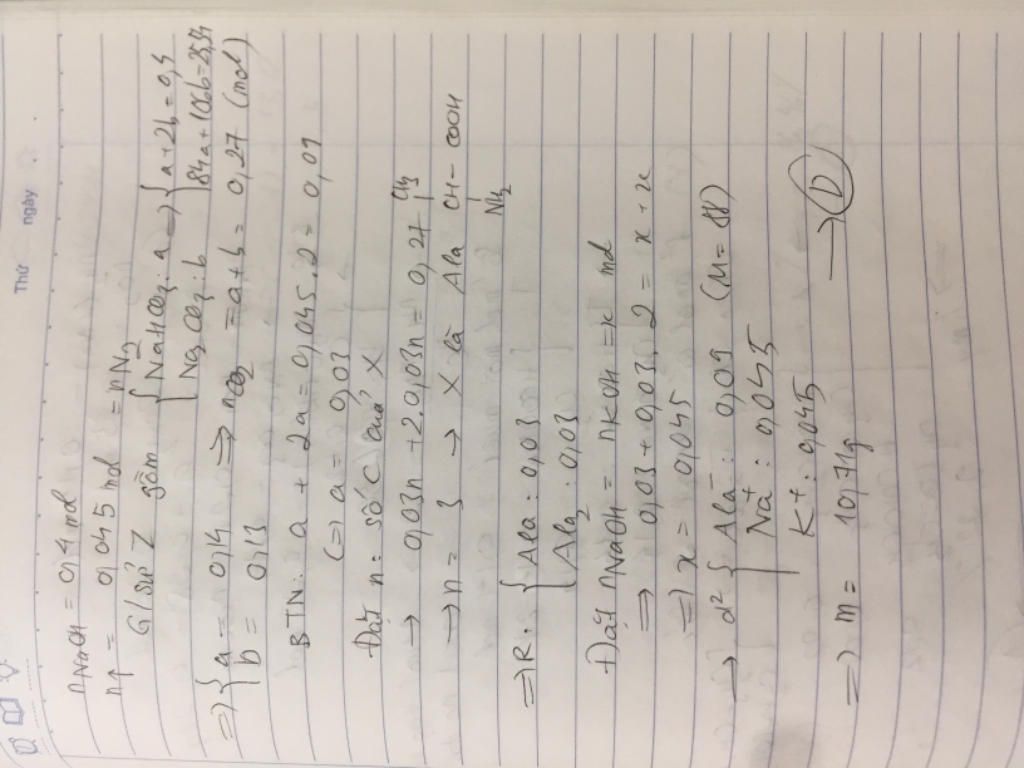 Thứ ngày
nNaOH = 0,4 mol
n↑ = 0,045 mol = nN2
G/sử Z gồm { NaHCO3: a → { a + 2b = 0,4
Na2CO3: b 84a + 106b = 25,54
=> { a = 0,14 => nCO2 = a + b = 0,27 (mol)
b = 0,13
BTN: a + 2a = 0,045.2 = 0,09
(=) a = 0,03
Đặt n: số C của X
→ 0,03n + 2.0,03n = 0,27
CH3
→ n = 3 → X là Ala CH - COOH
NH2
=> R: { Ala : 0,03
Ala2 : 0,03
Đặt nNaOH = nKOH = x mol
=> 0,03 + 0,03.2 = x + x
=> x = 0,045
→ d² { Ala⁻ : 0,09 (M = 88)
Na⁺ : 0,045
K⁺ : 0,045
=> m = 10,71g → D